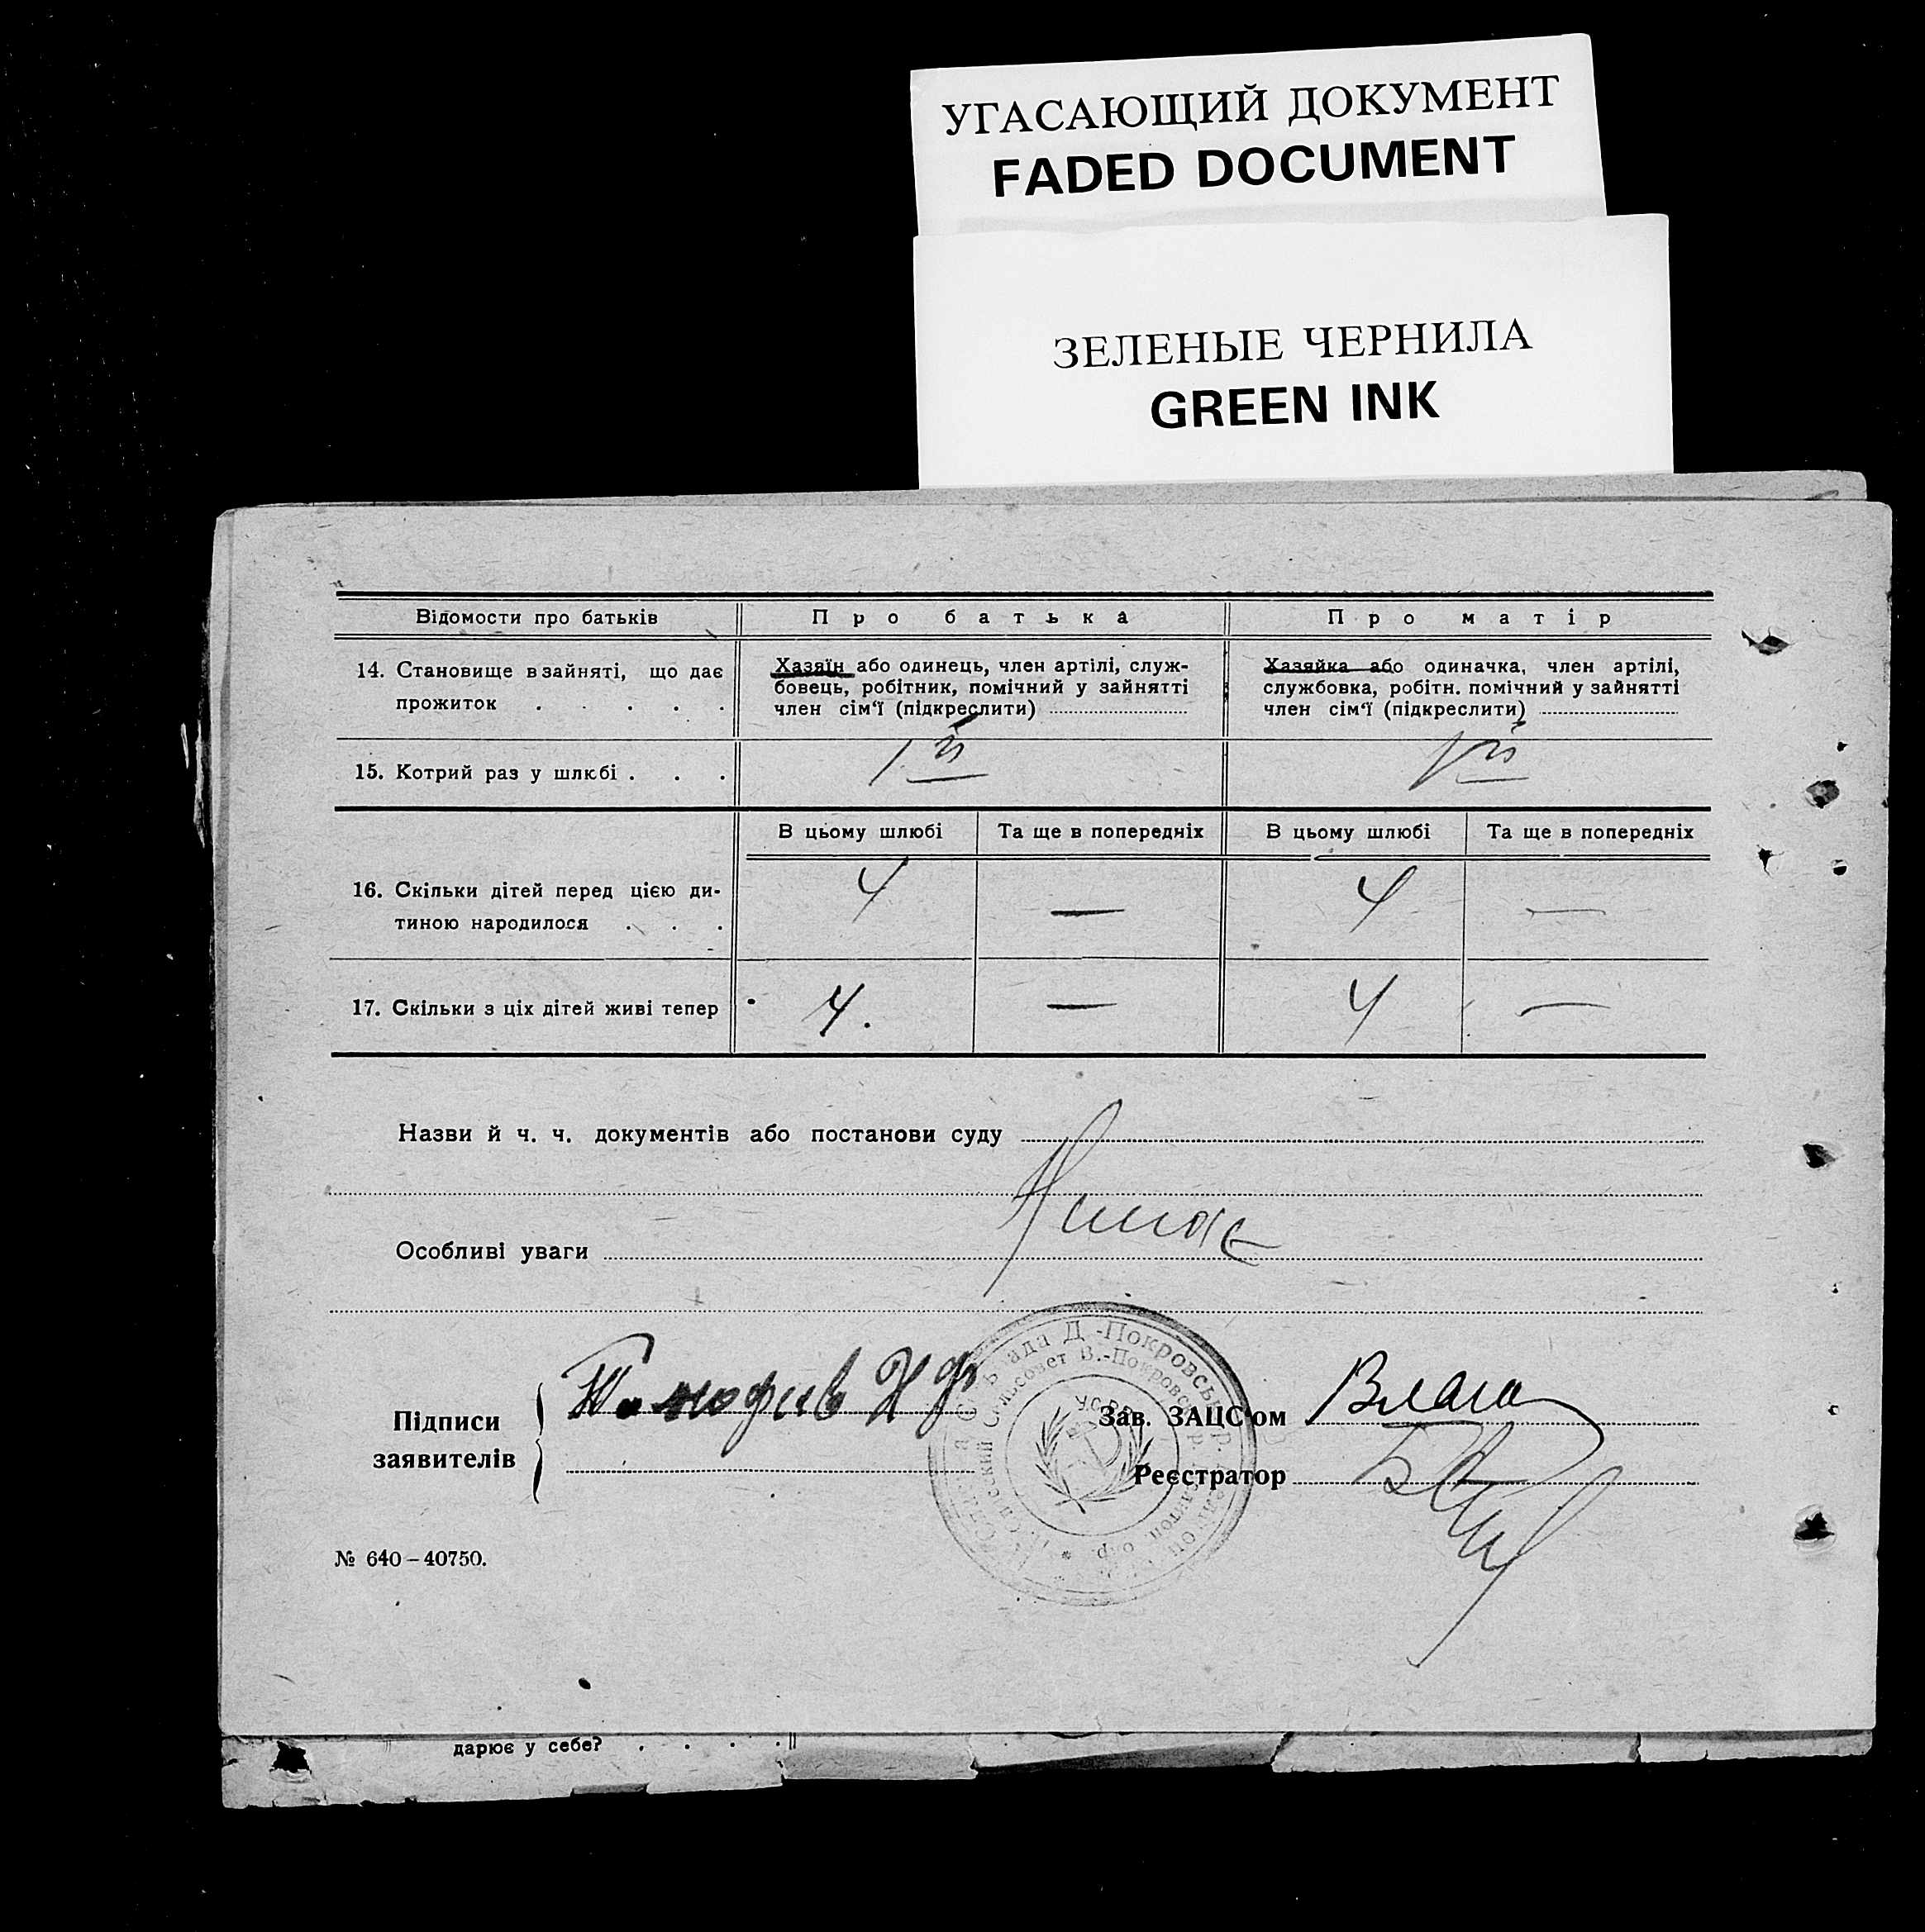 УГАСАЮЩИЙ ДОКУМЕНТ
FADED DOCUMENT
ЗЕЛЕНЫЕ ЧЕРНИЛА
GREEN INK
Відомости про батьків
Про батька
Про матір
14. Становище в зайняті, що дає
прожиток . . . . .
Хазяїн або одинець, член артілі, служ-
бовець, робітник, помічний у зайнятті
член сім‘ї (підкреслити)
Хазяйка або одиначка, член артілі,
службовка, робітн. помічний у зайнятті
член сім‘ї (підкреслити)
15. Котрий раз у шлюбі . . .
1й
1й
В цьому шлюбі
Та ще в попередніх
В цьому шлюбі
Та ще в попередніх
16. Скільки дітей перед цією ди-
тиною народилося . . .
4
—
4
—
17. Скільки з ціх дітей живі тепер
4.
—
4
—
Назви й ч. ч. документів або постанови суду
Особливі уваги
Підписи
заявителів
Зав. ЗАЦС‘ом
Реєстратор
рада Д-Покровськ
Сельсовет В.-Покровск
УСРР
№ 640–40750.
дарює у себе? . . . .